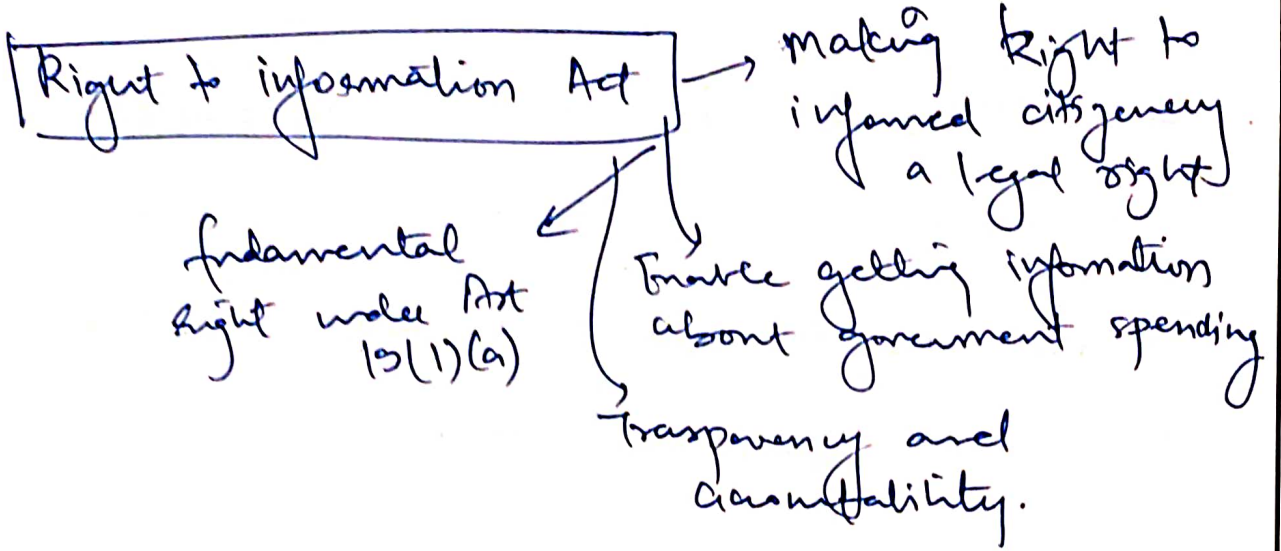 Right to information Act
Making Right to
informed citizenery
a legal right
fndamental
right under Art
19(1)(a)
Enable getting infomation
about government spending
Trasparency and
accountability.